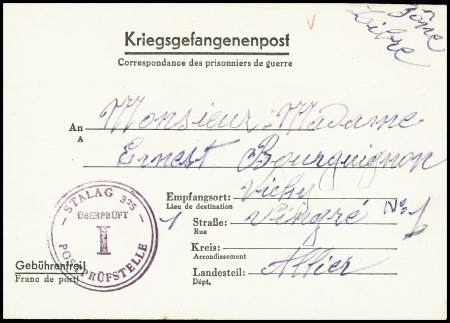 Zône
Libre
Kriegsgefangenenpost
Correspondance des prisonniers de guerre
An Monsieur Madame
A
Ernest Bourguignon
Empfangsort: Vichy
Lieu de destination
Straße: Vingré No 1
Rue
Kreis:
Arrondissement
Landesteil: Allier
Dépt.
STALAG 325
ÜBERPRÜFT
I
POSTPRÜFSTELLE
1
Gebührenfrei!
Franc de port!